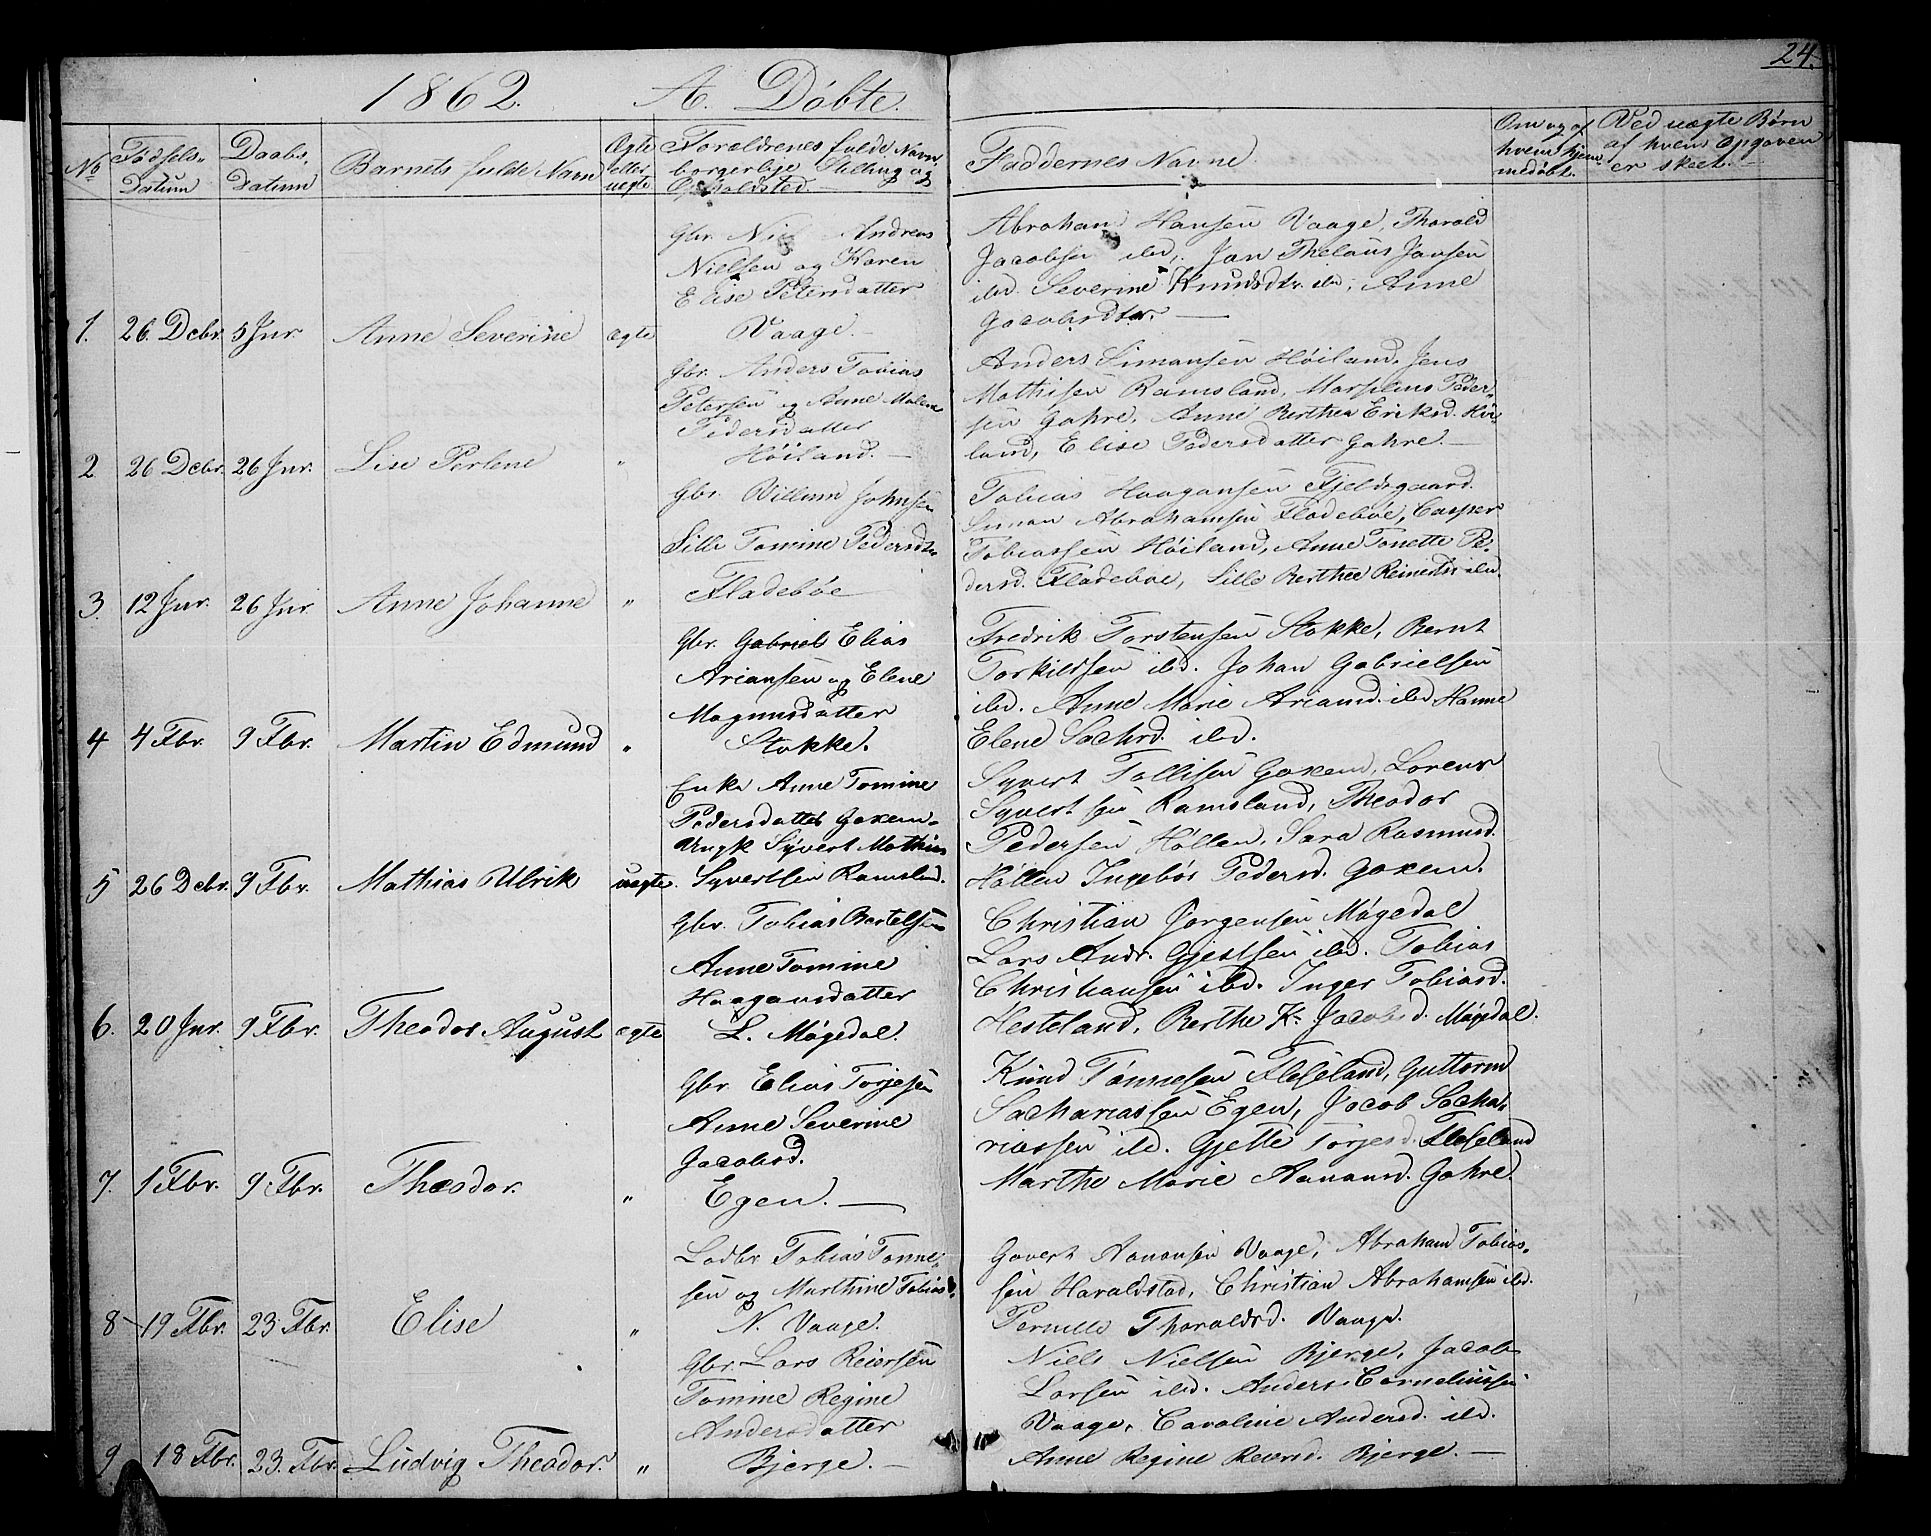 24.
1862. A. Döbte.
No
Fødsels-
Datum
Daabs-
Datum
Barnets fulde Navn
Ægte
eller
uegte
Foraldrenes fulde Navn
borgerlige Stilling og
Opholdsted.
Faddernes Navne
Om og af
hvem hjem-
medøbt.
Ved uægte Børn
af hvem Opgaven
er skeet.
1. 26. Debr. 5 Jnr. Anne Severine ægte
Gbr. Andreas
Nielsen og Karen
Elise Petersdatter
Vaage.
Abraham Hansen Vaage, Thorald
Jacobsen ibd, Jan Jansen
ibd. Severine Knudsdtr. ibd, Anne
Jacobsdtr.
2. 26 Debr. 26 Jnr. Lise Perlene "
Gbr. Anders Tobias
Petersen og Anne Malene
Pedersdatter
Höiland.
Anders Simonsen Höiland, Jens
Mathisen Ramsland, Peder-
sen Gahre, Anne Berthea Eriksd. Höi-
land, Elise Pedersdatter Gahre.
3. 12 Jnr. 26 Jnr. Anne Johanne "
Gbr. Villum Johnsen
Sille Tomine Pedersdtr
Fladebøe
Tobias Haagansen Fjeldsgaard.
Simon Abrahamsen Fladebøe, Casper
Tobiassen Höiland, Anne Tonette Pe-
dersd. Fladebøe, Sille Berthea ibd.
4 4 Fbr. 9 Fbr. Martin Edmund "
Gbr. Gabriel Elias
Ariansen og Elene
Magnusdatter
Stokke.
Fredrik Torstensen Stokke, Bernt
Torkildsen ibd. Johan Gabrielsen
ibd. Anne Marie Ariansd. ibd Hanne
Elene Sachrd. ibd.
5 26 Debr. 9 Fbr. Mathias Ulrik uegte.
Enke Anne Tomine
Pedersdatter Goxem-
Ungk Syvert Mathias
Syvertsen Ramsland.
Syvert Tollisen Goxem, Lorens
Syvertsen Ramsland, Theodor
Pedersen Höllen, Sara Rasmusd.
Höllen Ingebör Pedersd. Goxem.
6. 20 Jnr. 9 Fbr. Theodor August ægte
Gbr. Tobias Bertelsen
Anne Tomine
Haagansdatter
L. Mögedal.
Christian Jörgensen Mögedal
Lars Andr. Gjestsen ibd. Tobias
Christiansen ibd. Inger Tobiasd.
Hesteland, Berthe K. Jacobsd. Mögedal.
7. 1 Fbr. 9 Fbr. Theodor. "
Gbr. Elias Torjesen
Anne Severine
Jacobsd.
Egen.
Knud Tönnesen Fleseland, Guttorm
Sachariassen Egen, Jacob Sacha-
riassen ibd. Gjette Torjesd. Fleseland
Marthe Marie Aanansd. Gahre.
8 19 Fbr. 23 Fbr. Elise "
Tobias Tönne-
sen og Marthine Tobiasd.
N. Vaage.
Govert Aanansen Vaage, Abraham Tobias-
sen Haraldstad, Christian Abrahamsen ibd.
Pernille Thoraldsd. Vaage.
9 18 Fbr. 23. Fbr. Ludvig Theodor. "
Gbr. Lars Reiersen
Tomine Regine
Andersdatter
Bjerge.
Niels Nielsen Bjerge, Jacob
Larsen ibd. Anders Corneliussen
Vaage, Caroline Andersd. ibd.
Anne Regine Reiersd. Bjerge.